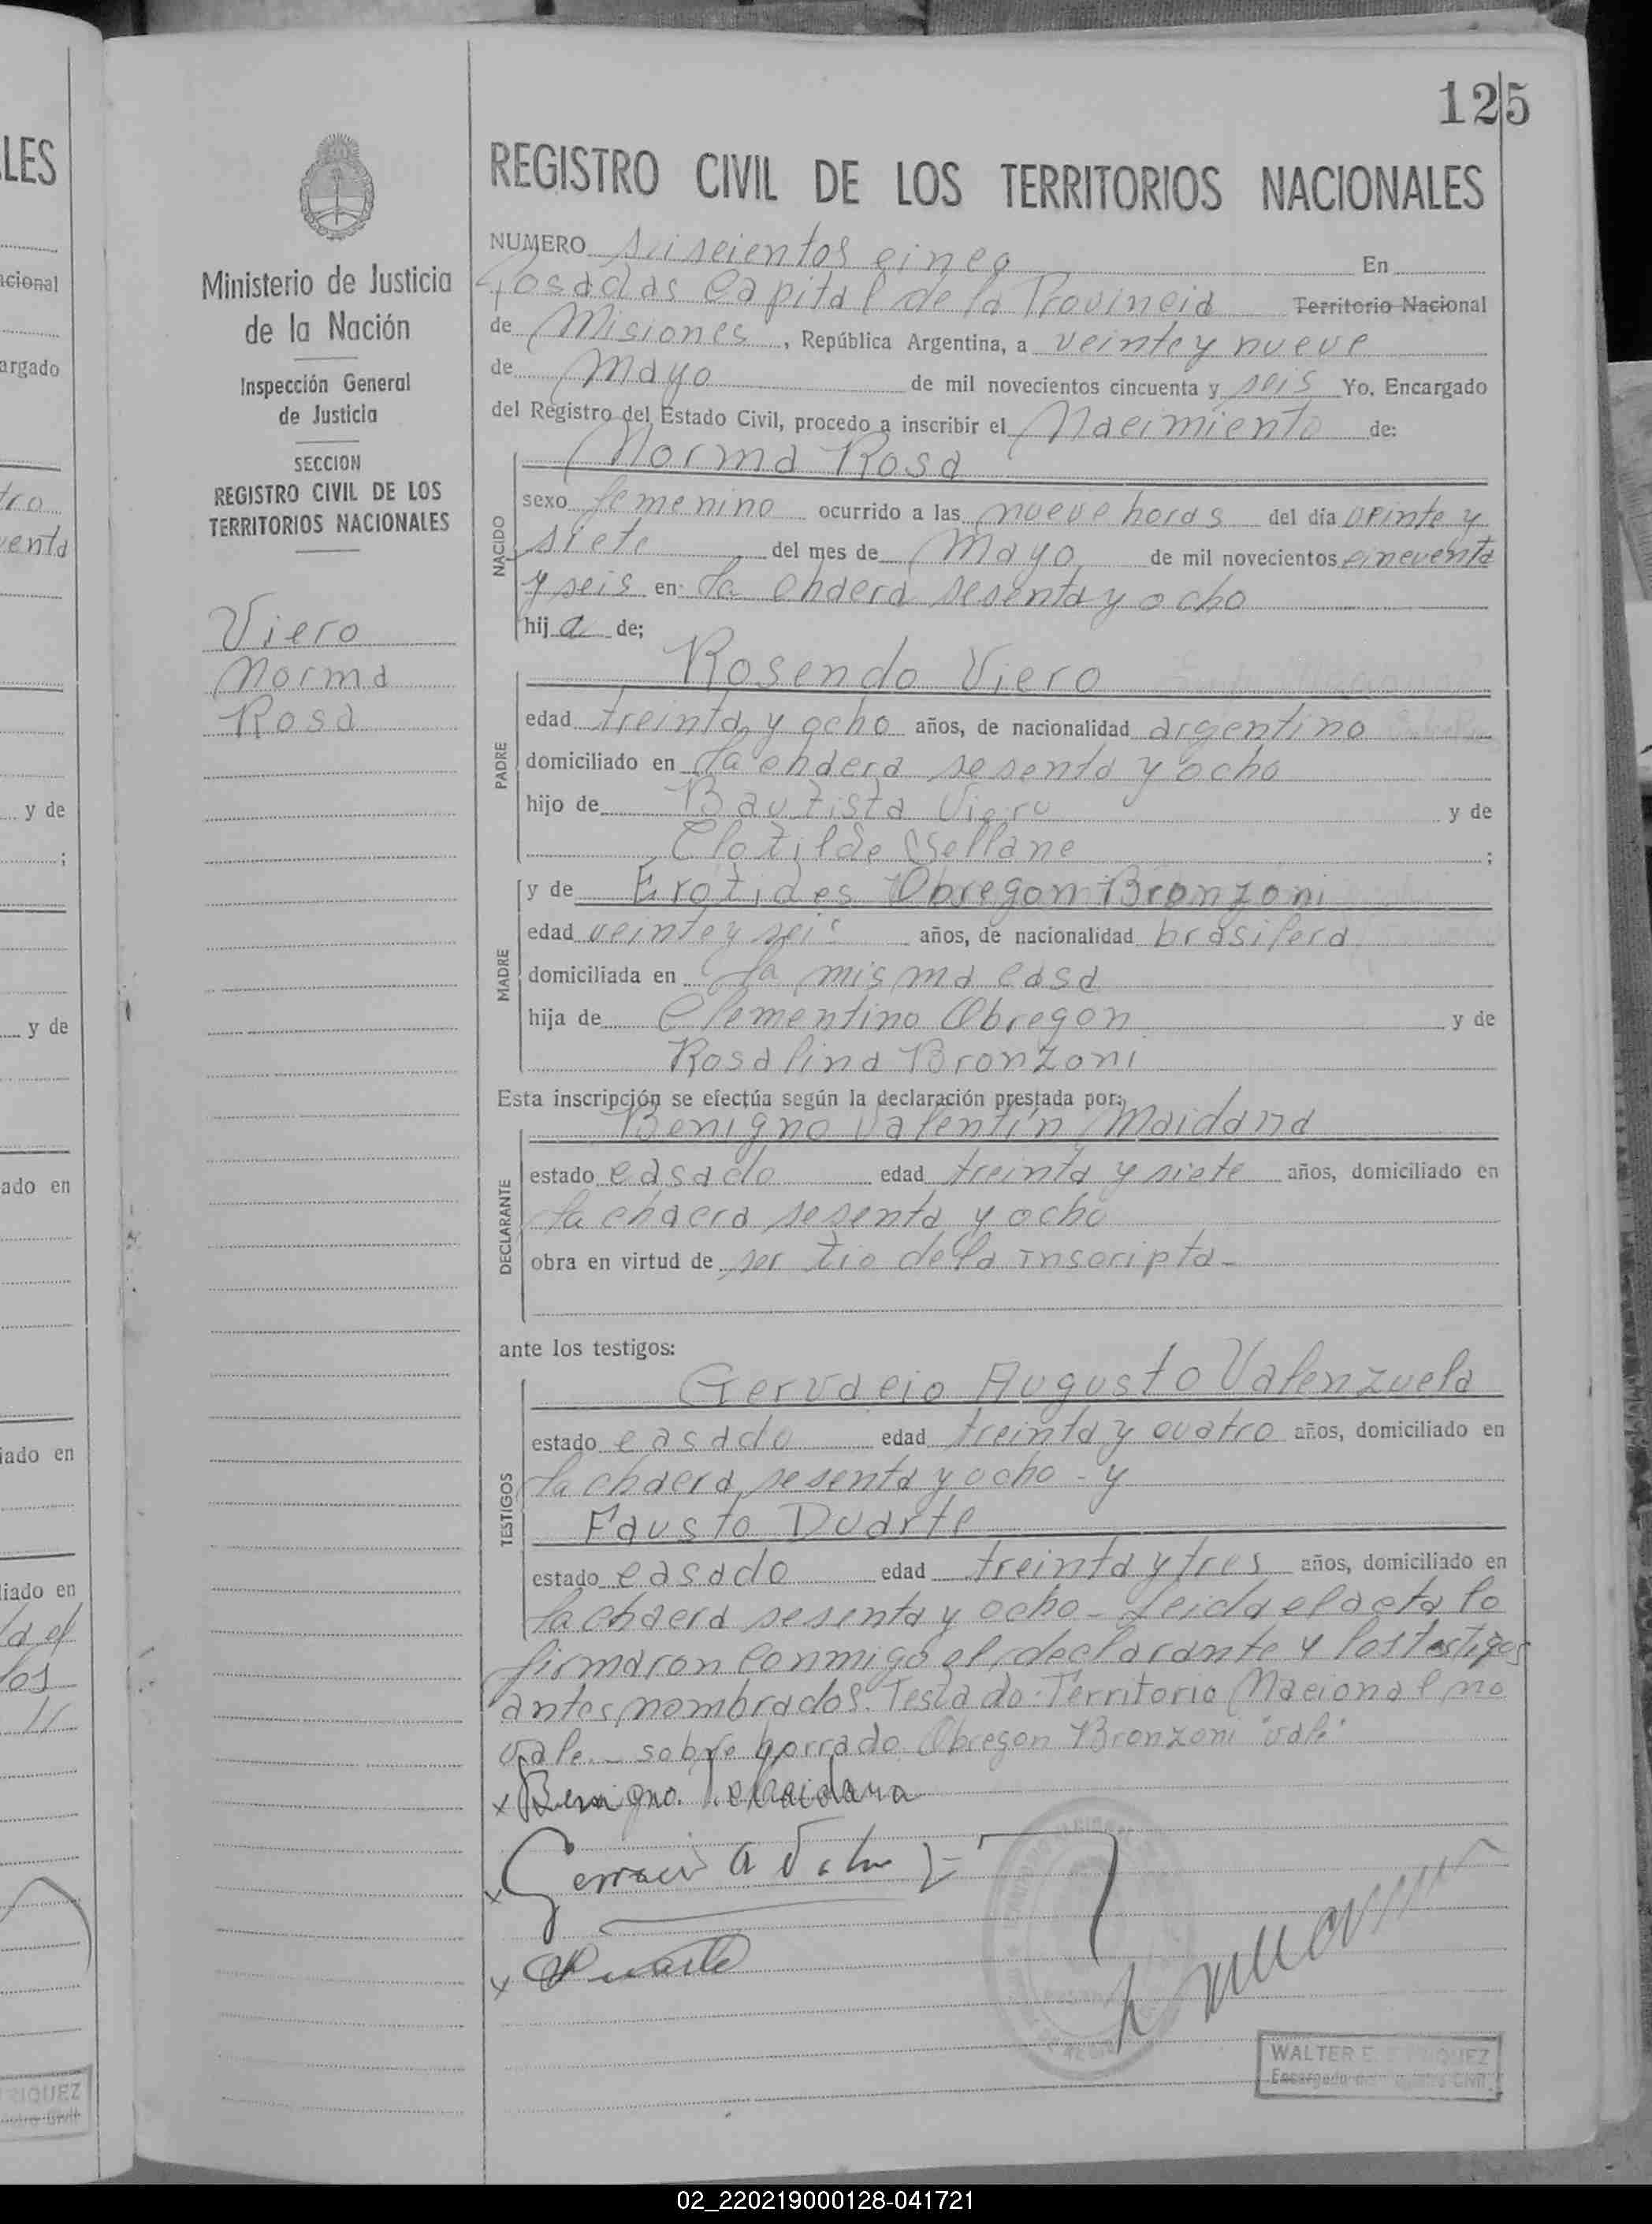 125
LES
acional
argado
tro
enta
y de
;
y de
ado en
iado en
liado en
la el
los
RIQUEZ
Ministerio de Justicia
de la Nación
Inspección General
de Justicia
SECCION
REGISTRO CIVIL DE LOS
TERRITORIOS NACIONALES
Viero
Norma
Rosa
REGISTRO CIVIL DE LOS TERRITORIOS NACIONALES
NUMERO seiscientos cinco En
Posadas Capital de la Provincia Territorio Nacional
de Misiones, República Argentina, a veinte y nueve
de Mayo de mil novecientos cincuenta y seis Yo, Encargado
del Registro del Estado Civil, procedo a inscribir el Nacimiento de:
Norma Rosa
NACIDO
sexo femenino ocurrido a las nueve horas del día veinte y
siete del mes de Mayo de mil novecientos cincuenta
y seis en la chacra sesenta y ocho
hija de;
Rosendo Viero
PADRE
edad treinta y ocho años, de nacionalidad argentino
domiciliado en la chacra sesenta y ocho
hijo de Bautista Viero y de
Clotilde Sellane ;
MADRE
y de Erotides Obregon Bronzoni
edad veinte y seis años, de nacionalidad brasilera
domiciliada en la misma casa
hija de Clementino Obregon y de
Rosalina Bronzoni
Esta inscripción se efectúa según la declaración prestada por:
Benigno Valentín Maidana
DECLARANTE
estado casado edad treinta y siete años, domiciliado en
la chacra sesenta y ocho
obra en virtud de ser tio de la inscripta-
ante los testigos:
Gervacio Augusto Valenzuela
TESTIGOS
estado casado edad treinta y cuatro años, domiciliado en
la chacra sesenta y ocho - y
Fausto Duarte
estado casado edad treinta y tres años, domiciliado en
la chacra sesenta y ocho - Leida el acta lo
firmaron conmigo el declarante y los testigos
antes nombrados. Testado: Territorio Nacional no
vale - sobre borrado Obregon Bronzoni "vale"
x Benigno Maidana
x
x Duarte
WALTER E.
Encargado
02_220219000128-041721